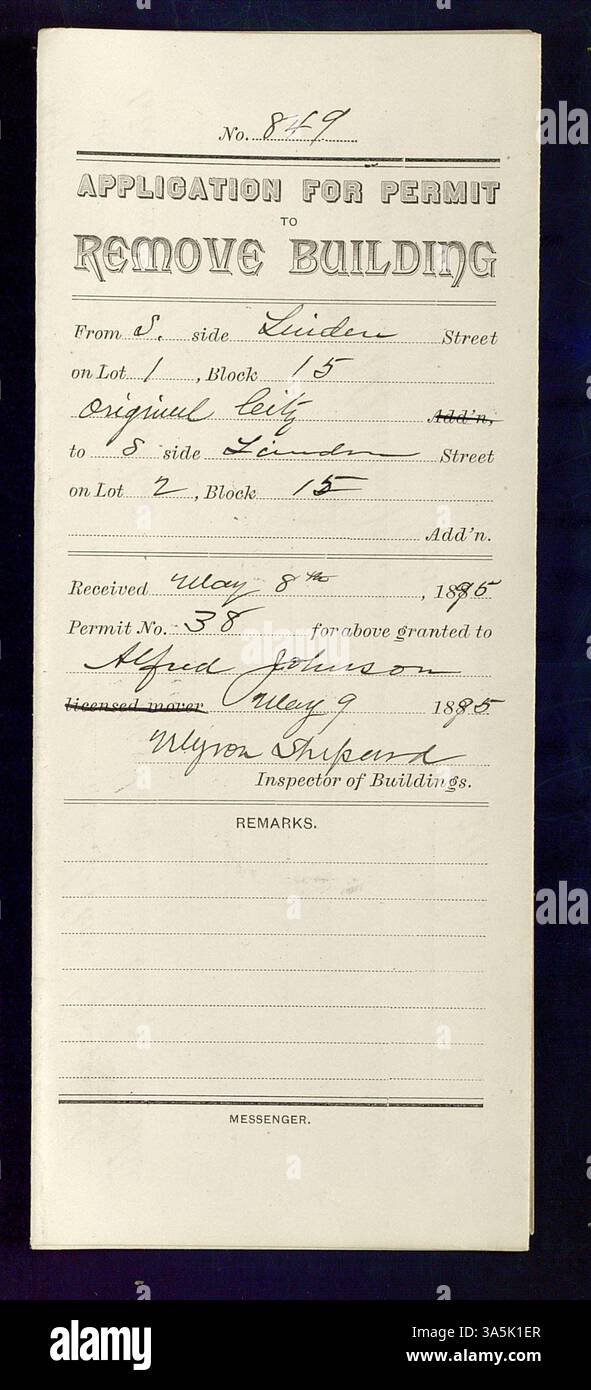 No. 849
APPLICATION FOR PERMIT
TO
REMOVE BUILDING
From S. side Linden Street
on Lot 1, Block 15
Original City Add'n,
to S side Linden Street
on Lot 2, Block 15
Add'n.
Received May 8th, 1895
Permit No. 38 for above granted to
Alfred Johnson
licensed mover May 9 1895
Myron Shepard
Inspector of Buildings.
REMARKS.
MESSENGER.
alamy
alamy
Image ID: 3A5K1ER
www.alamy.com